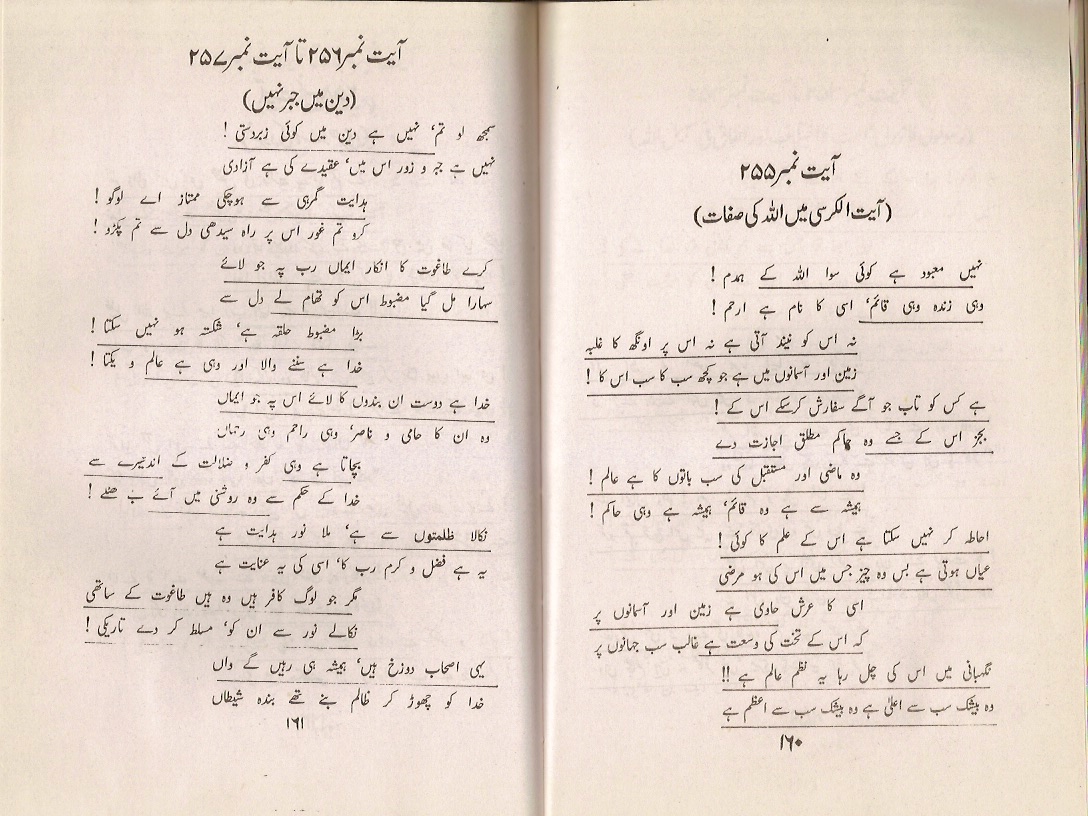 آیت نمبر ۲۵۵
(آیت الکرسی میں اللہ کی صفات)
نہیں معبود ہے کوئی سوا اللہ کے ہمدم !
وہی زندہ وہی قائم، اسی کا نام ہے ارحم !
نہ اس کو نیند آتی ہے نہ اس پر اونگھ کا غلبہ
زمین اور آسمانوں میں ہے جو کچھ سب کا سب اس کا !
ہے کس کو تاب جو آگے سفارش کرسکے اس کے !
بجز اس کے جسے وہ حاکم مطلق اجازت دے
وہ ماضی اور مستقبل کی سب باتوں کا ہے عالم !
ہمیشہ سے ہے وہ قائم، ہمیشہ ہے وہی حاکم !
احاطہ کر نہیں سکتا ہے اس کے علم کا کوئی !
عیاں ہوتی ہے بس وہ چیز جس میں اس کی ہو مرضی
اسی کا عرش حاوی ہے زمین اور آسمانوں پر
کہ اس کے تخت کی وسعت ہے غالب سب جہانوں پر
نگہبانی میں اس کی چل رہا یہ نظم عالم ہے !!
وہ بیشک سب سے اعلیٰ ہے وہ بیشک سب سے اعظم ہے
۱۶۰
آیت نمبر ۲۵۶ تا آیت نمبر ۲۵۷
(دین میں جبر نہیں)
سمجھ لو تم، نہیں ہے دین میں کوئی زبردستی !
نہیں ہے جبر و زور اس میں، عقیدے کی ہے آزادی
ہدایت گمرہی سے ہوچکی ممتاز اے لوگو !
کرو تم غور اس پر راہ سیدھی دل سے تم پکڑو !
کرے طاغوت کا انکار ایماں رب پہ جو لائے
سہارا مل گیا مضبوط اس کو تھام لے دل سے
بڑا مضبوط حلقہ ہے، شکستہ ہو نہیں سکتا !
خدا ہے سننے والا اور وہی ہے عالم و یکتا !
خدا ہے دوست ان بندوں کا لائے اس پہ جو ایماں
وہ ان کا حامی و ناصر، وہی راحم وہی رحماں
بچاتا ہے وہی کفر و ضلالت کے اندھیرے سے
خدا کے حکم سے وہ روشنی میں آئے ب ھٹکے !
نکالا ظلمتوں سے ہے، ملا نور ہدایت ہے
یہ ہے فضل و کرم رب کا، اسی کی یہ عنایت ہے
مگر جو لوگ کافر ہیں وہ ہیں طاغوت کے ساتھی
نکالے نور سے ان کو، مسلط کر دے تاریکی !
یہی اصحاب دوزخ ہیں، ہمیشہ ہی رہیں گے واں
خدا کو چھوڑ کر ظالم بنے تھے بندہ شیطاں
۱۶۱